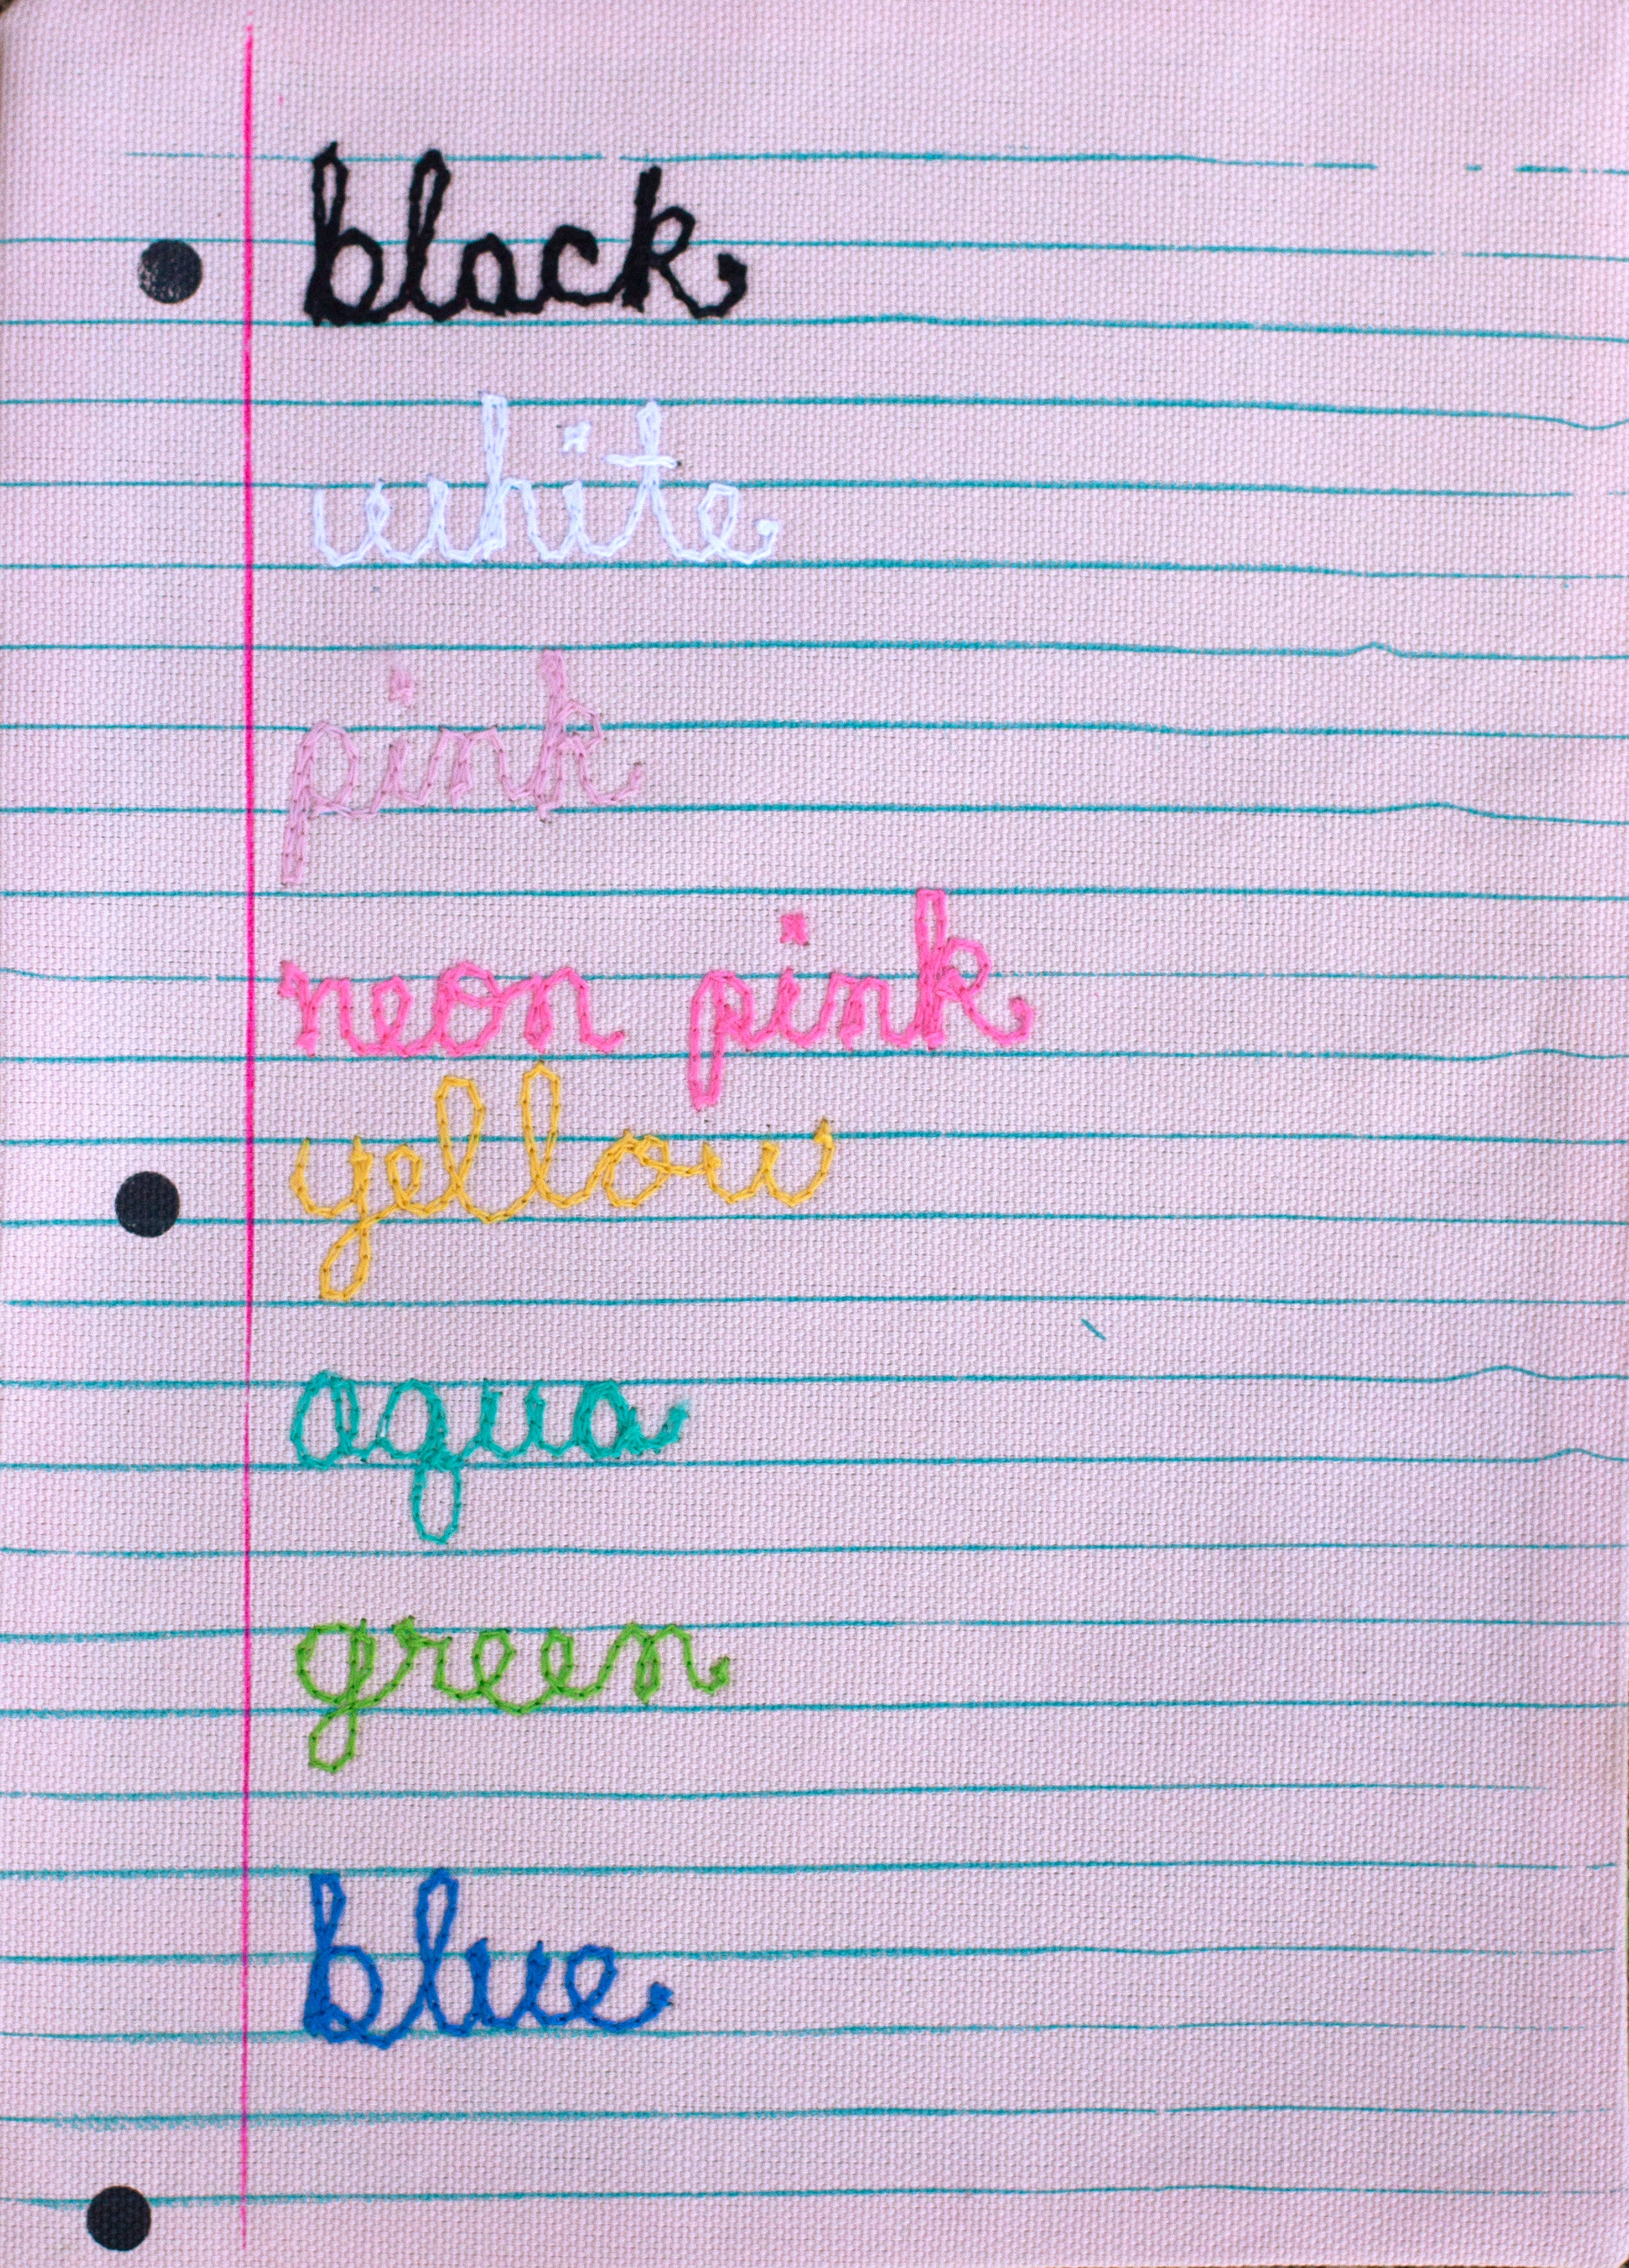 black
white
pink
neon pink
yellow
aqua
green
blue